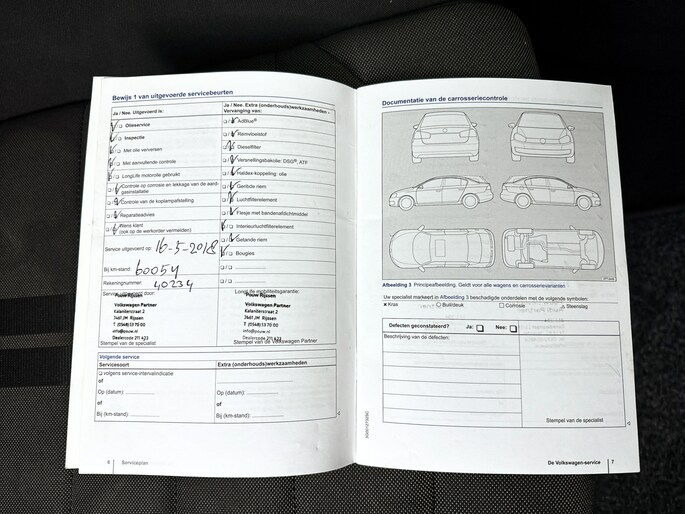 Bewijs 1 van uitgevoerde servicebeurten
Ja / Nee. Uitgevoerd is:
Olieservice
Inspectie
Met olie verversen
Met aanvullende controle
LongLife motorolie gebruikt
Controle op corrosie en lekkage van de aardgasinstallatie
Controle van de koplampafstelling
Reparatieadvies
Wens klant
(ook op de werkorder vermelden)
Service uitgevoerd op: 16-5-2018
Bij km-stand: 60054
Rekeningnummer: 40234
Service uitgevoerd door:
Pouw Rijssen
Volkswagen Partner
Kalanderstraat 2
7461 JM Rijssen
T (0548) 53 70 00
info@pouw.nl
Dealercode 211 423
Stempel van de specialist
Ja / Nee. Extra (onderhouds)werkzaamheden -
Vervanging van:
AdBlue®
Remvloeistof
Dieselfilter
Versnellingsbakolie; DSG®, ATF
Haldex-koppeling: olie
Geribde riem
Luchtfilterelement
Flesje met bandenafdichtmiddel
Interieurluchtfilterelement
Getande riem
Bougies
LongLife mobiliteitsgarantie:
Pouw Rijssen
Volkswagen Partner
Kalanderstraat 2
7461 JM Rijssen
T (0548) 53 70 00
info@pouw.nl
Dealercode 211 423
Stempel van de Volkswagen Partner
Volgende service
Servicesoort
volgens service-intervalindicatie
of
Op (datum):
of
Bij (km-stand):
Extra (onderhouds)werkzaamheden
Op (datum):
of
Bij (km-stand):
6
Serviceplan
Documentatie van de carrosseriecontrole
Afbeelding 3 Principeafbeelding. Geldt voor alle wagens en carrosserievarianten
Uw specialist markeert in Afbeelding 3 beschadigde onderdelen met de volgende symbolen:
Kras
Buil/deuk
Corrosie
Steenslag
Defecten geconstateerd? Ja: Nee:
Beschrijving van de defecten:
Stempel van de specialist
De Volkswagen-service
7